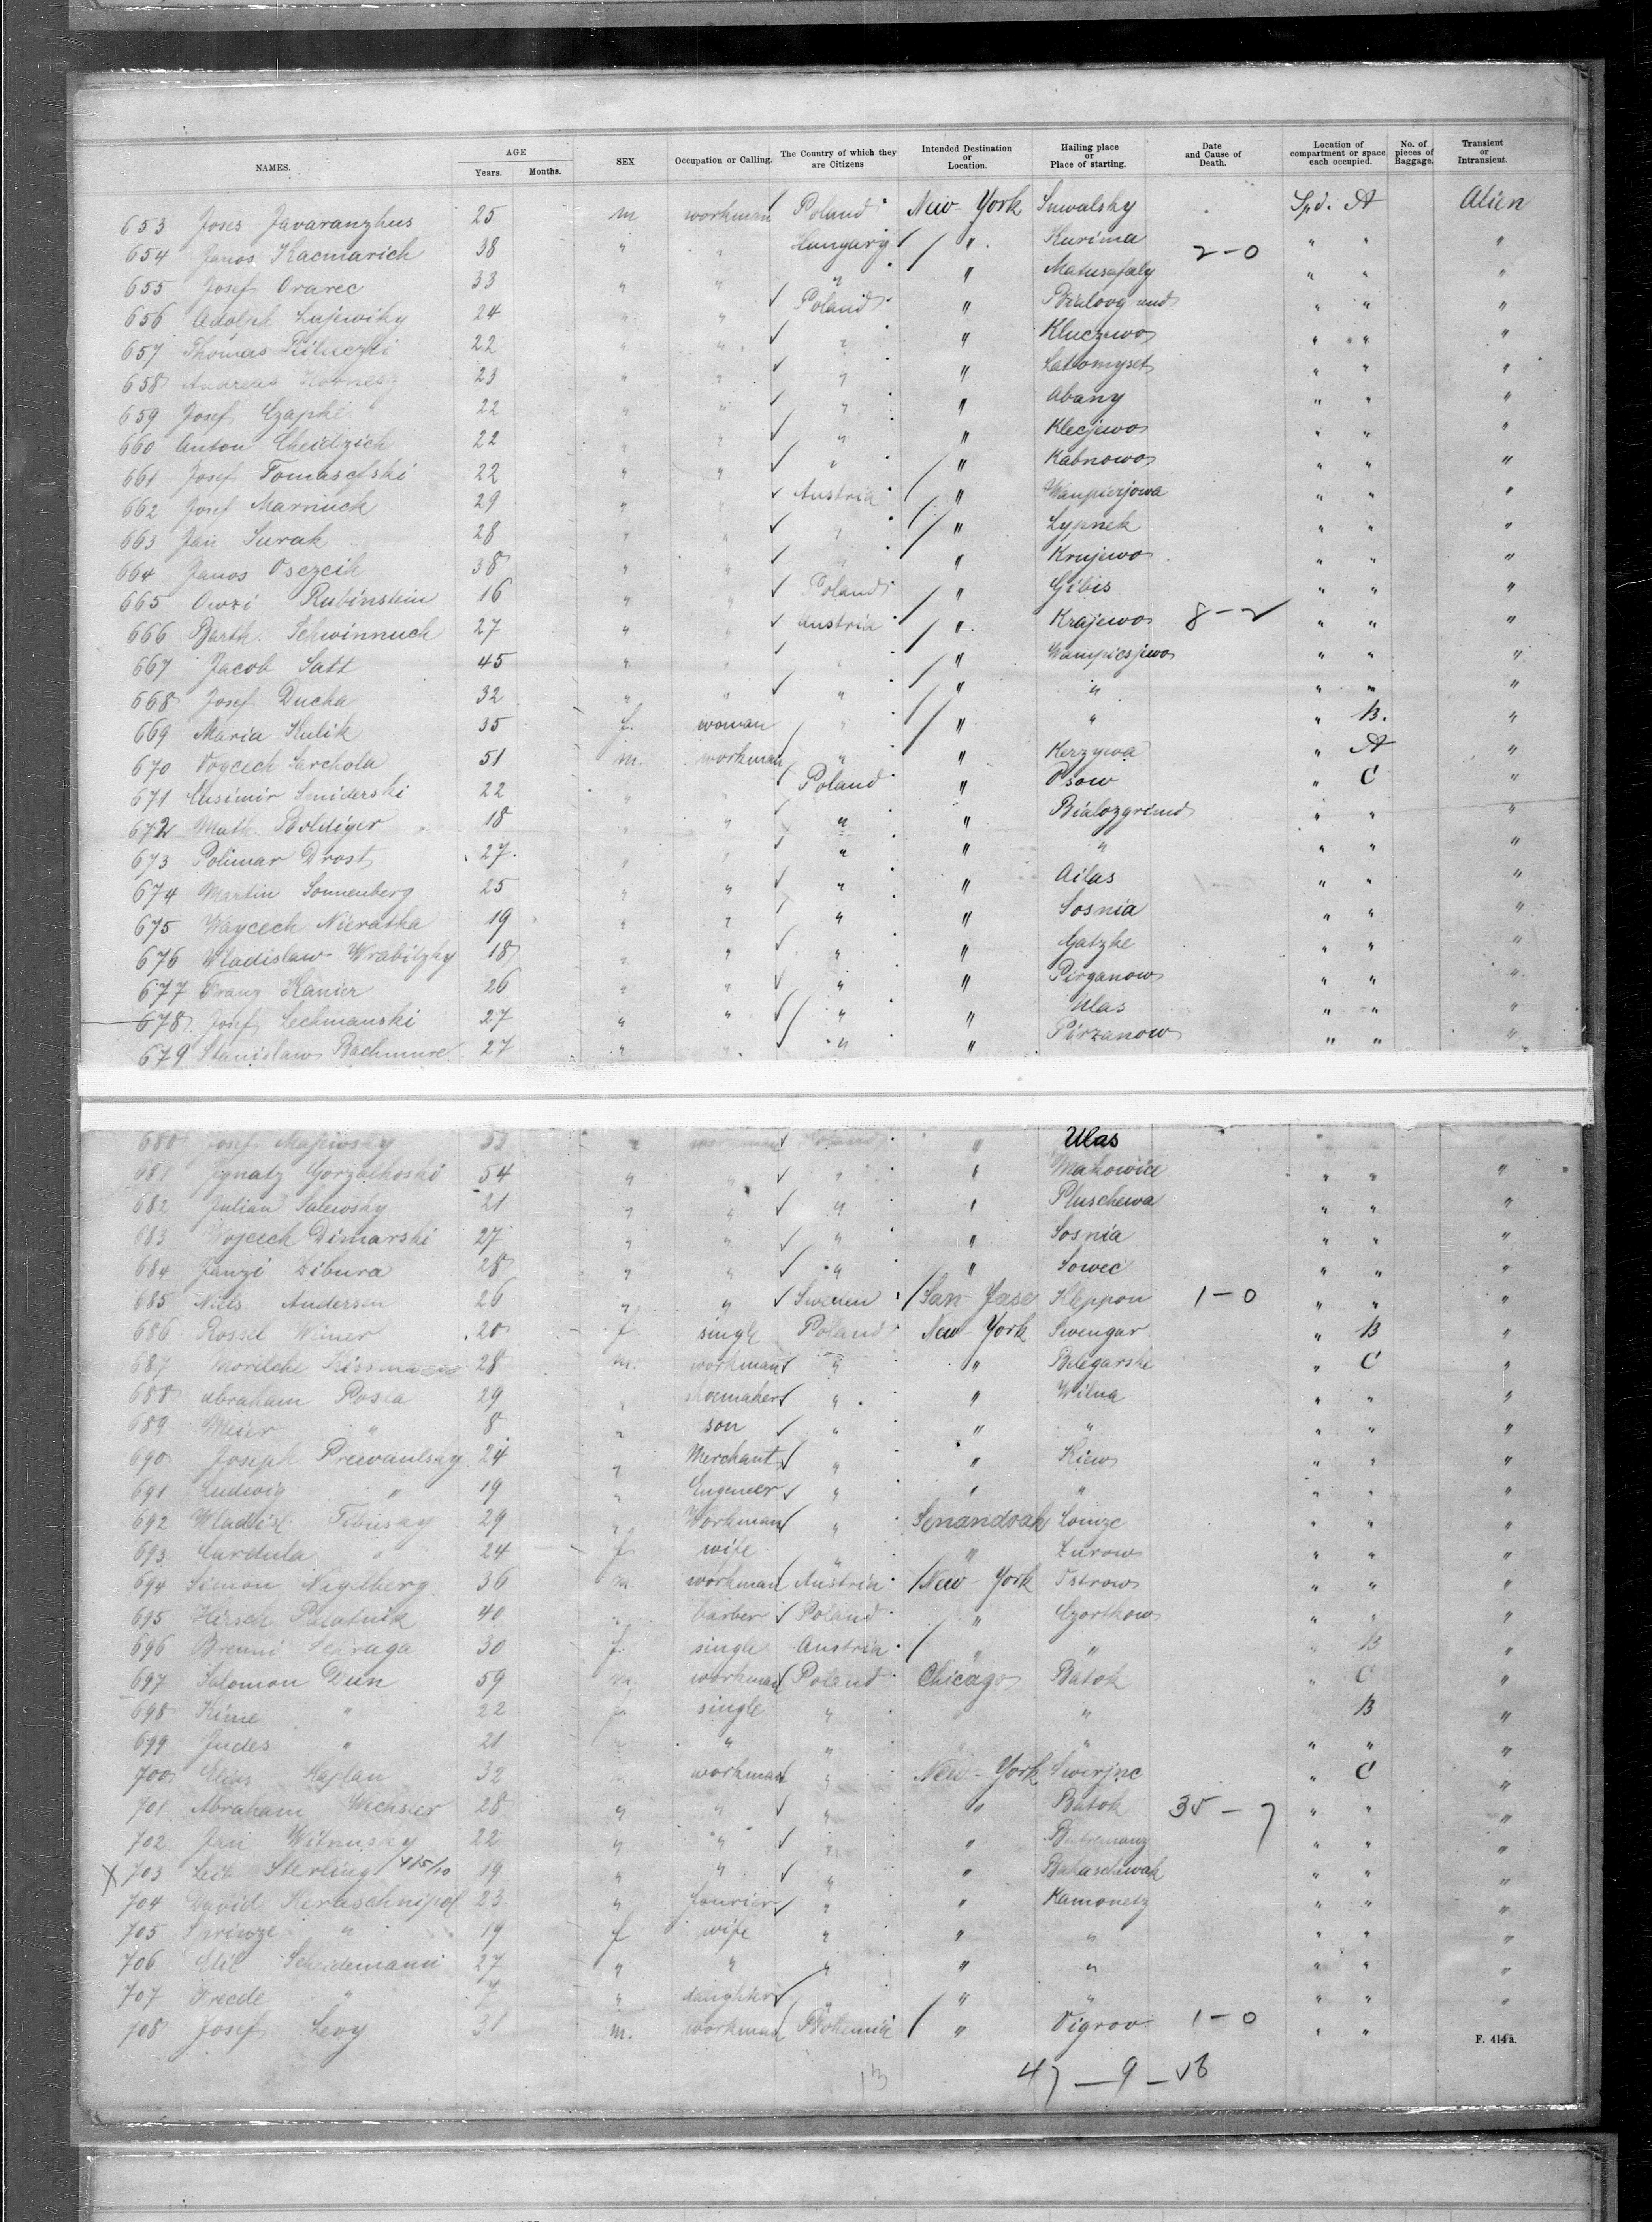 NAMES. AGE Years. Months. SEX Occupation or Calling. The Country of which they are Citizens Intended Destination or Location. Hailing place or Place of starting. Date and Cause of Death. Location of compartment or space each occupied. No. of pieces of Baggage. Transient or Intransient.
653 Joses Javaranzhus 25 m workman Poland New-York Suwalsky Spd. A Alien
654 Janos Kacmarich 38 " " Hungary " Kurima 2-0 " " "
655 Josef Orarec 33 " " " " Matusafaly " " "
656 Adolph 24 " " Poland " " " "
657 Thomas 22 " " " " Kluczewo " " "
658 Andreas 23 " " " " " " "
659 Josef Czaphi 22 " " " " Abany " " "
660 Anton 22 " " " " Klecjewo " " "
661 Josef Tomasefski 22 " " " " Kabnowo " " "
662 Josef Marnuch 29 " " Austria " Wanpierjowa " " "
663 Jan Surak 28 " " " " Lypnek " " "
664 Janos Osczcih 38 " " " " Krujewo " " "
665 Owzi Rubinstein 16 " " Poland " Gibis " " "
666 Barth. Schwinnuch 27 " " Austria " Krajewo 8-2 " " "
667 Jacob Satt 45 " " " " Wampiesjewo " " "
668 Josef Ducha 32 " " " " " " " "
669 Maria Kulik 35 f. woman " " " " B. "
670 Voycech Sarchola 51 m. workman " " Kerzywa " A "
671 Casimir Smiderski 22 " " Poland " Osow " C "
672 Math. Boldiger 18 " " " " Bialozgrimd " " "
673 Polimar Drost 27 " " " " " " " "
674 Martin Sonnenberg 25 " " " " Ailas " " "
675 Waycech Nieratka 19 " " " " Sosnia " " "
676 Wladislaw Wrabitzky 18 " " " " Gatzke " " "
677 Franz Kanier 26 " " " " Pirganow " " "
678 Josef Lechmanski 27 " " " " Ulas " " "
679 Stanislaw Bachmure 27 " " " " Pirzanow " " "
680 Josef Majewsky 53 " workman Poland " Ulas
681 Ignatz Gorzalkoski 54 " " " " Makowice " " "
682 Julian Salewsky 21 " " " " Pluschewa " " "
683 Wojcech Dimarski 27 " " " " Sosnia " " "
684 Janzi Zibura 28 " " " " Sowec " " "
685 Niels Andersen 26 " " Sweden San-Jase Kleppon 1-0 " " "
686 Rossel Winer 20 f. single Poland New-York Swengar " B "
687 28 m. workman " " Belegarske " C "
688 Abraham Posea 29 " shoemaker " " Wilna " " "
689 Meier " 8 " son " " " " " "
690 Joseph Prewaulsky 24 " Merchant " " Kiew " " "
691 Ludwig " 19 " Engeneer " " " " " "
692 Wladisl. 29 " Workman " Senandoah Lomze " " "
693 Cardula " 24 f wife " " Zurow " " "
694 Simon Nagelberg 36 m. workman Austria New-York Ostrow " " "
695 Hirsch Palatnik 40 " barber Poland " Czortkow " " "
696 Brenni Schraga 30 f. single Austria " " " B "
697 Salomon Dun 59 m. workman Poland Chicago Batok " C "
698 Kime " 22 f. single " " " B "
699 Judes " 21 " " " " " " " "
700 Elias Kaplan 32 m workman " New-York Swerjnc " C "
701 Abraham Wechsler 28 " " " " Batok 35-7 " " "
702 Jan Witnusky 22 " " " " " " "
X 703 Leib Sterling 415/10 19 " " " " Bakaschwak " " "
704 David Keraschnipol 23 " fourier " " Kamonetz " " "
705 Sprinze " 19 f wife " " " " " "
706 Elie Scheidemann 27 " " " " " " " "
707 Freede " 7 " daughter " " " " " "
708 Josef Levy 31 m. workman Bohemia " Vigrov 1-0 " "
F. 414a.
13 47-9-56